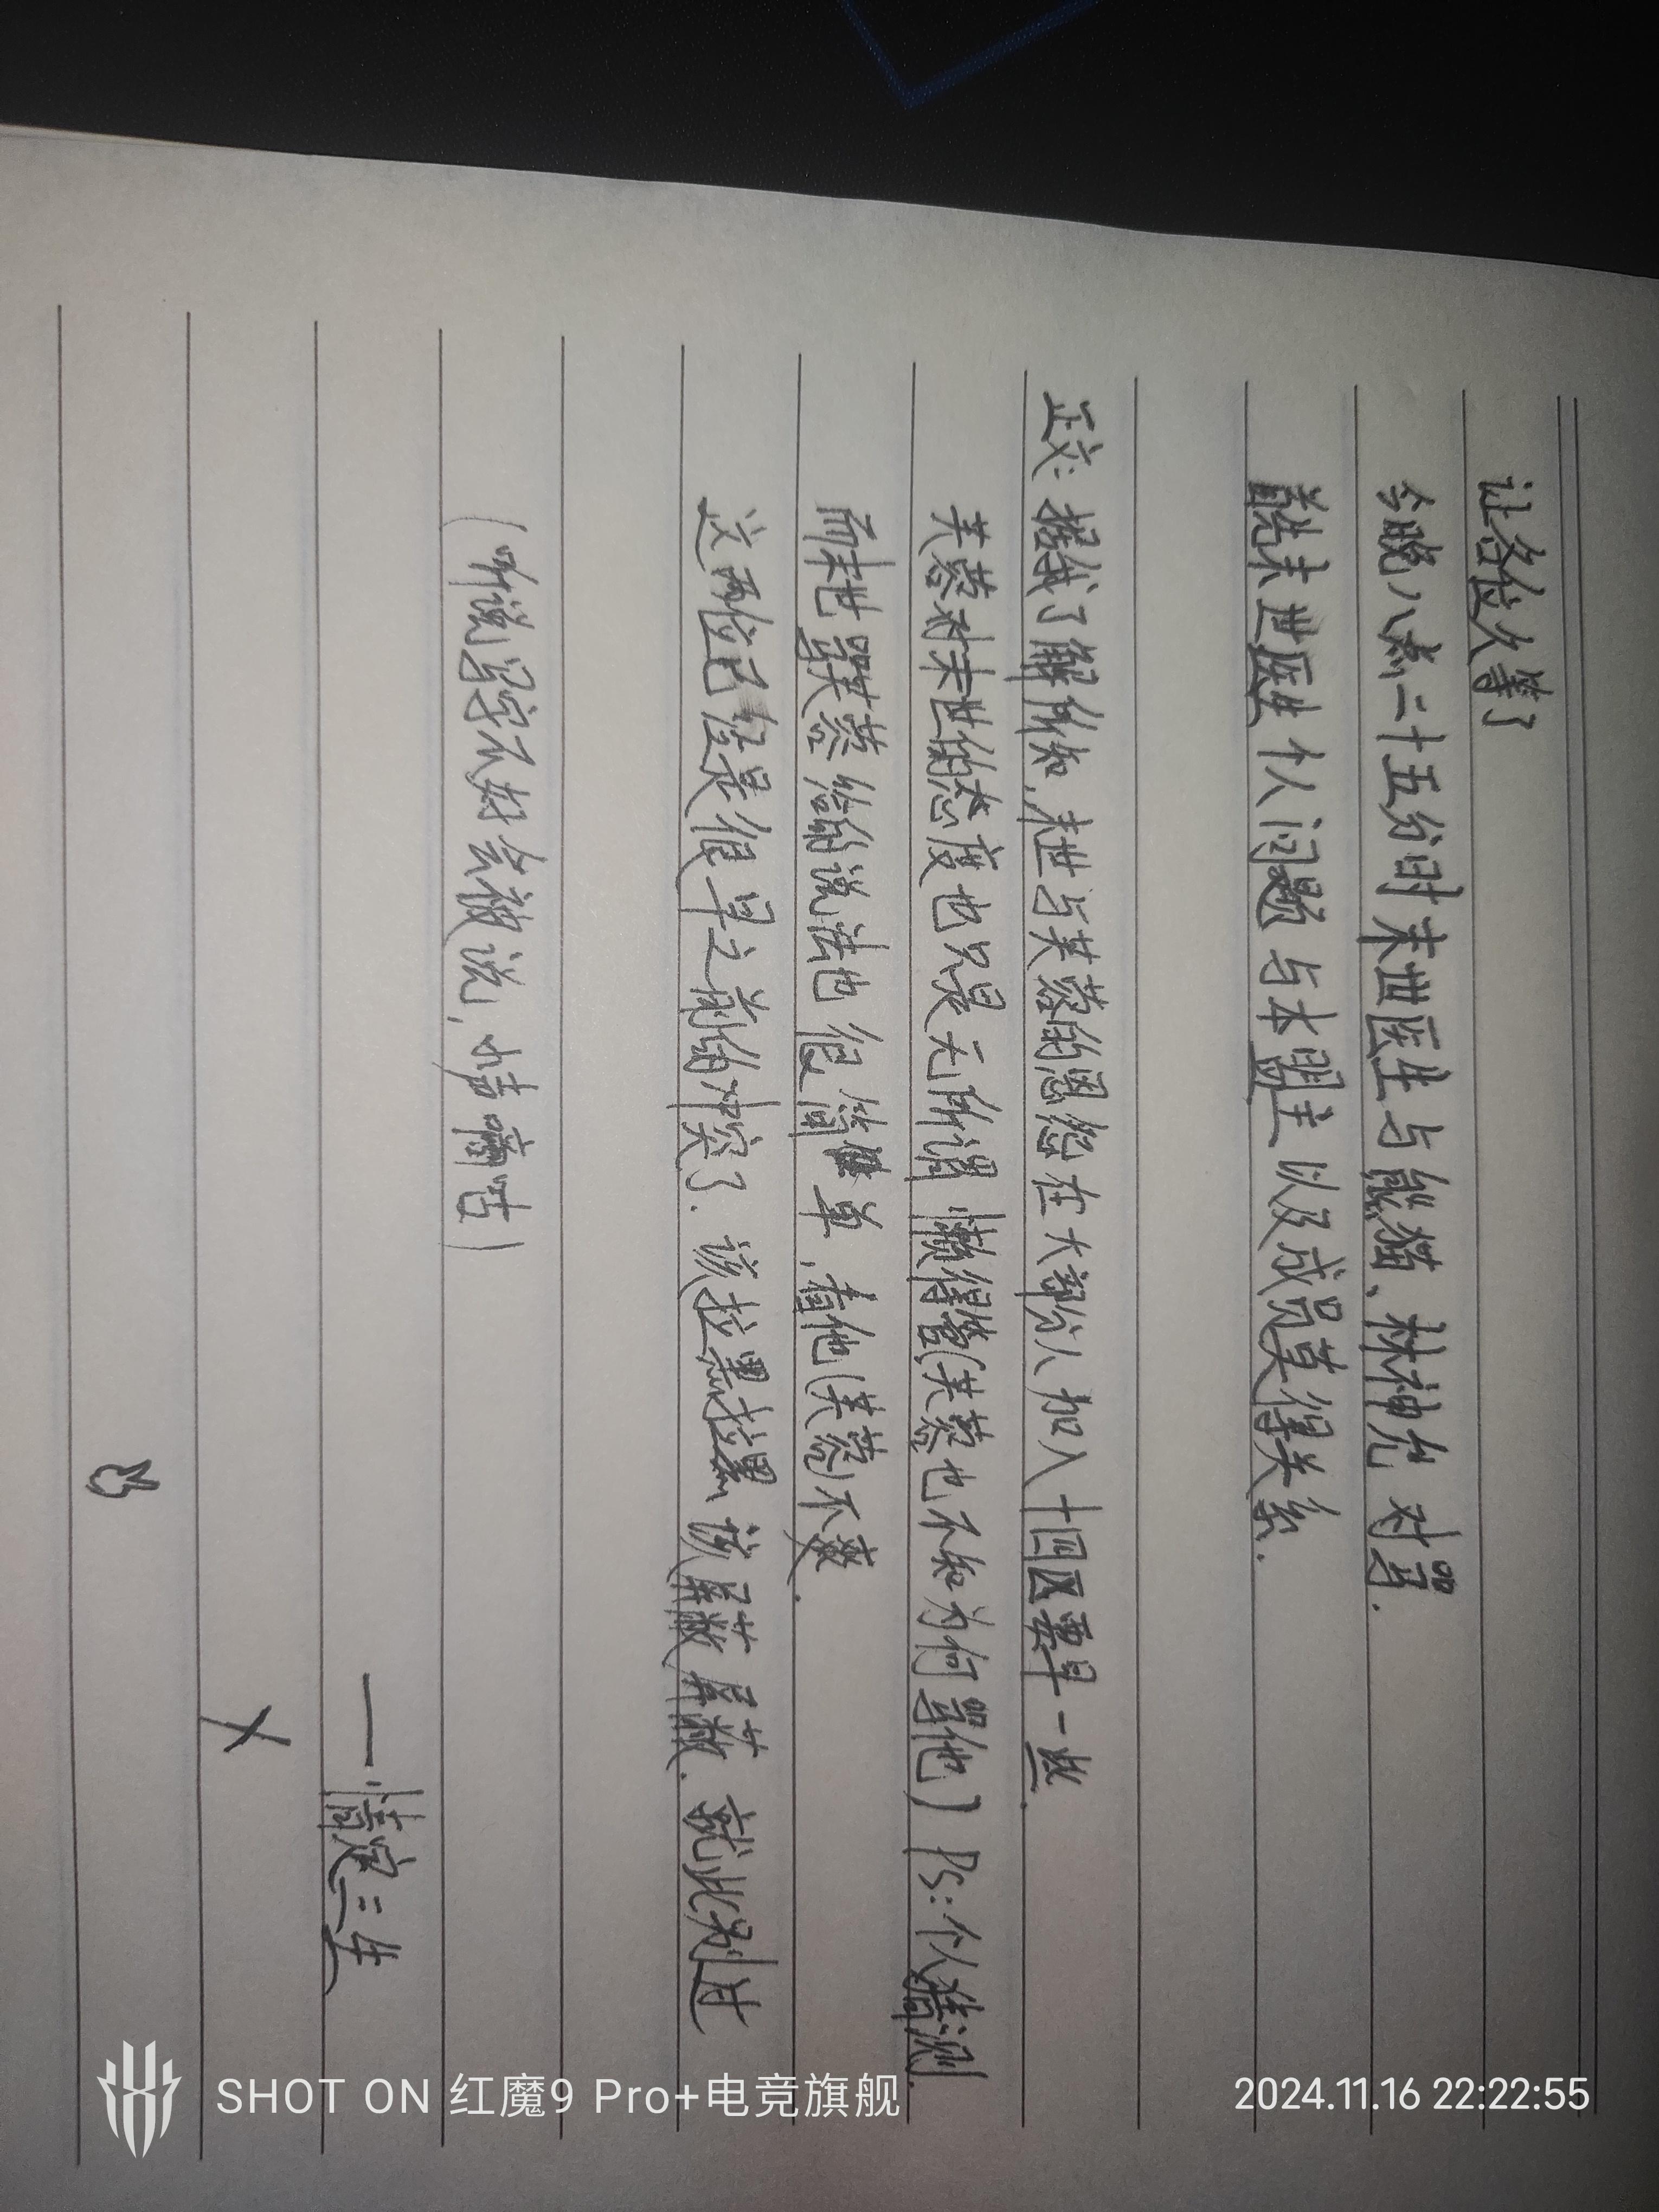 让各位久等了
今晚八点二十五分时末世医生与熊猫、林神允 对骂.
皓末世医生 个人问题 与本盟主 以及成员莫得关系.
正文: 据我了解所知,末世与芙蓉的恩怨在大部份人加入十四区要早一些.
芙蓉对末世的态度也只是无所谓 懒得管(芙蓉也不知为何骂他) Ps:个人猜测.
而末世骂芙蓉给的说法也很简单,看他(芙蓉)不爽.
这两位已经是很早之前的冲突了. 该拉黑拉黑 该屏蔽屏蔽. 就此别过
(听说写字不好会被说,小声嘀咕)
——情定三生
SHOT ON 红魔9 Pro+电竞旗舰
2024.11.16 22:22:55